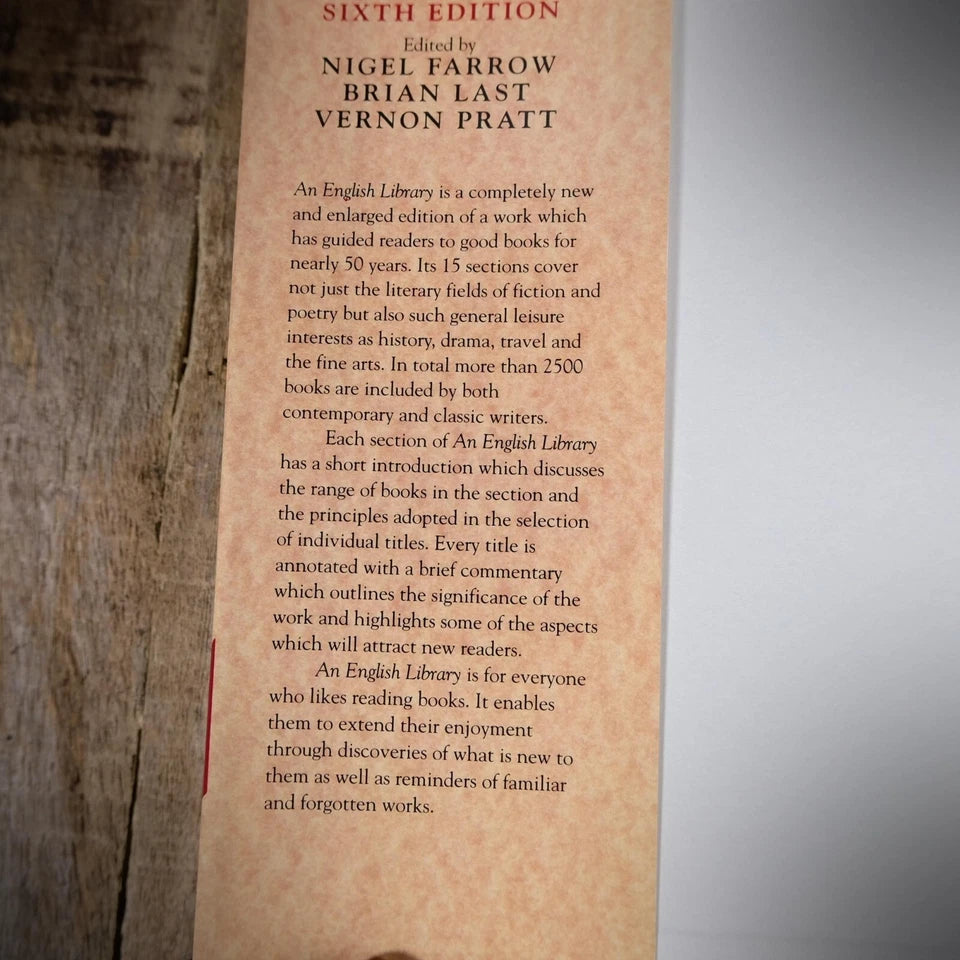 SIXTH EDITION
Edited by
NIGEL FARROW
BRIAN LAST
VERNON PRATT
An English Library is a completely new
and enlarged edition of a work which
has guided readers to good books for
nearly 50 years. Its 15 sections cover
not just the literary fields of fiction and
poetry but also such general leisure
interests as history, drama, travel and
the fine arts. In total more than 2500
books are included by both
contemporary and classic writers.
Each section of An English Library
has a short introduction which discusses
the range of books in the section and
the principles adopted in the selection
of individual titles. Every title is
annotated with a brief commentary
which outlines the significance of the
work and highlights some of the aspects
which will attract new readers.
An English Library is for everyone
who likes reading books. It enables
them to extend their enjoyment
through discoveries of what is new to
them as well as reminders of familiar
and forgotten works.